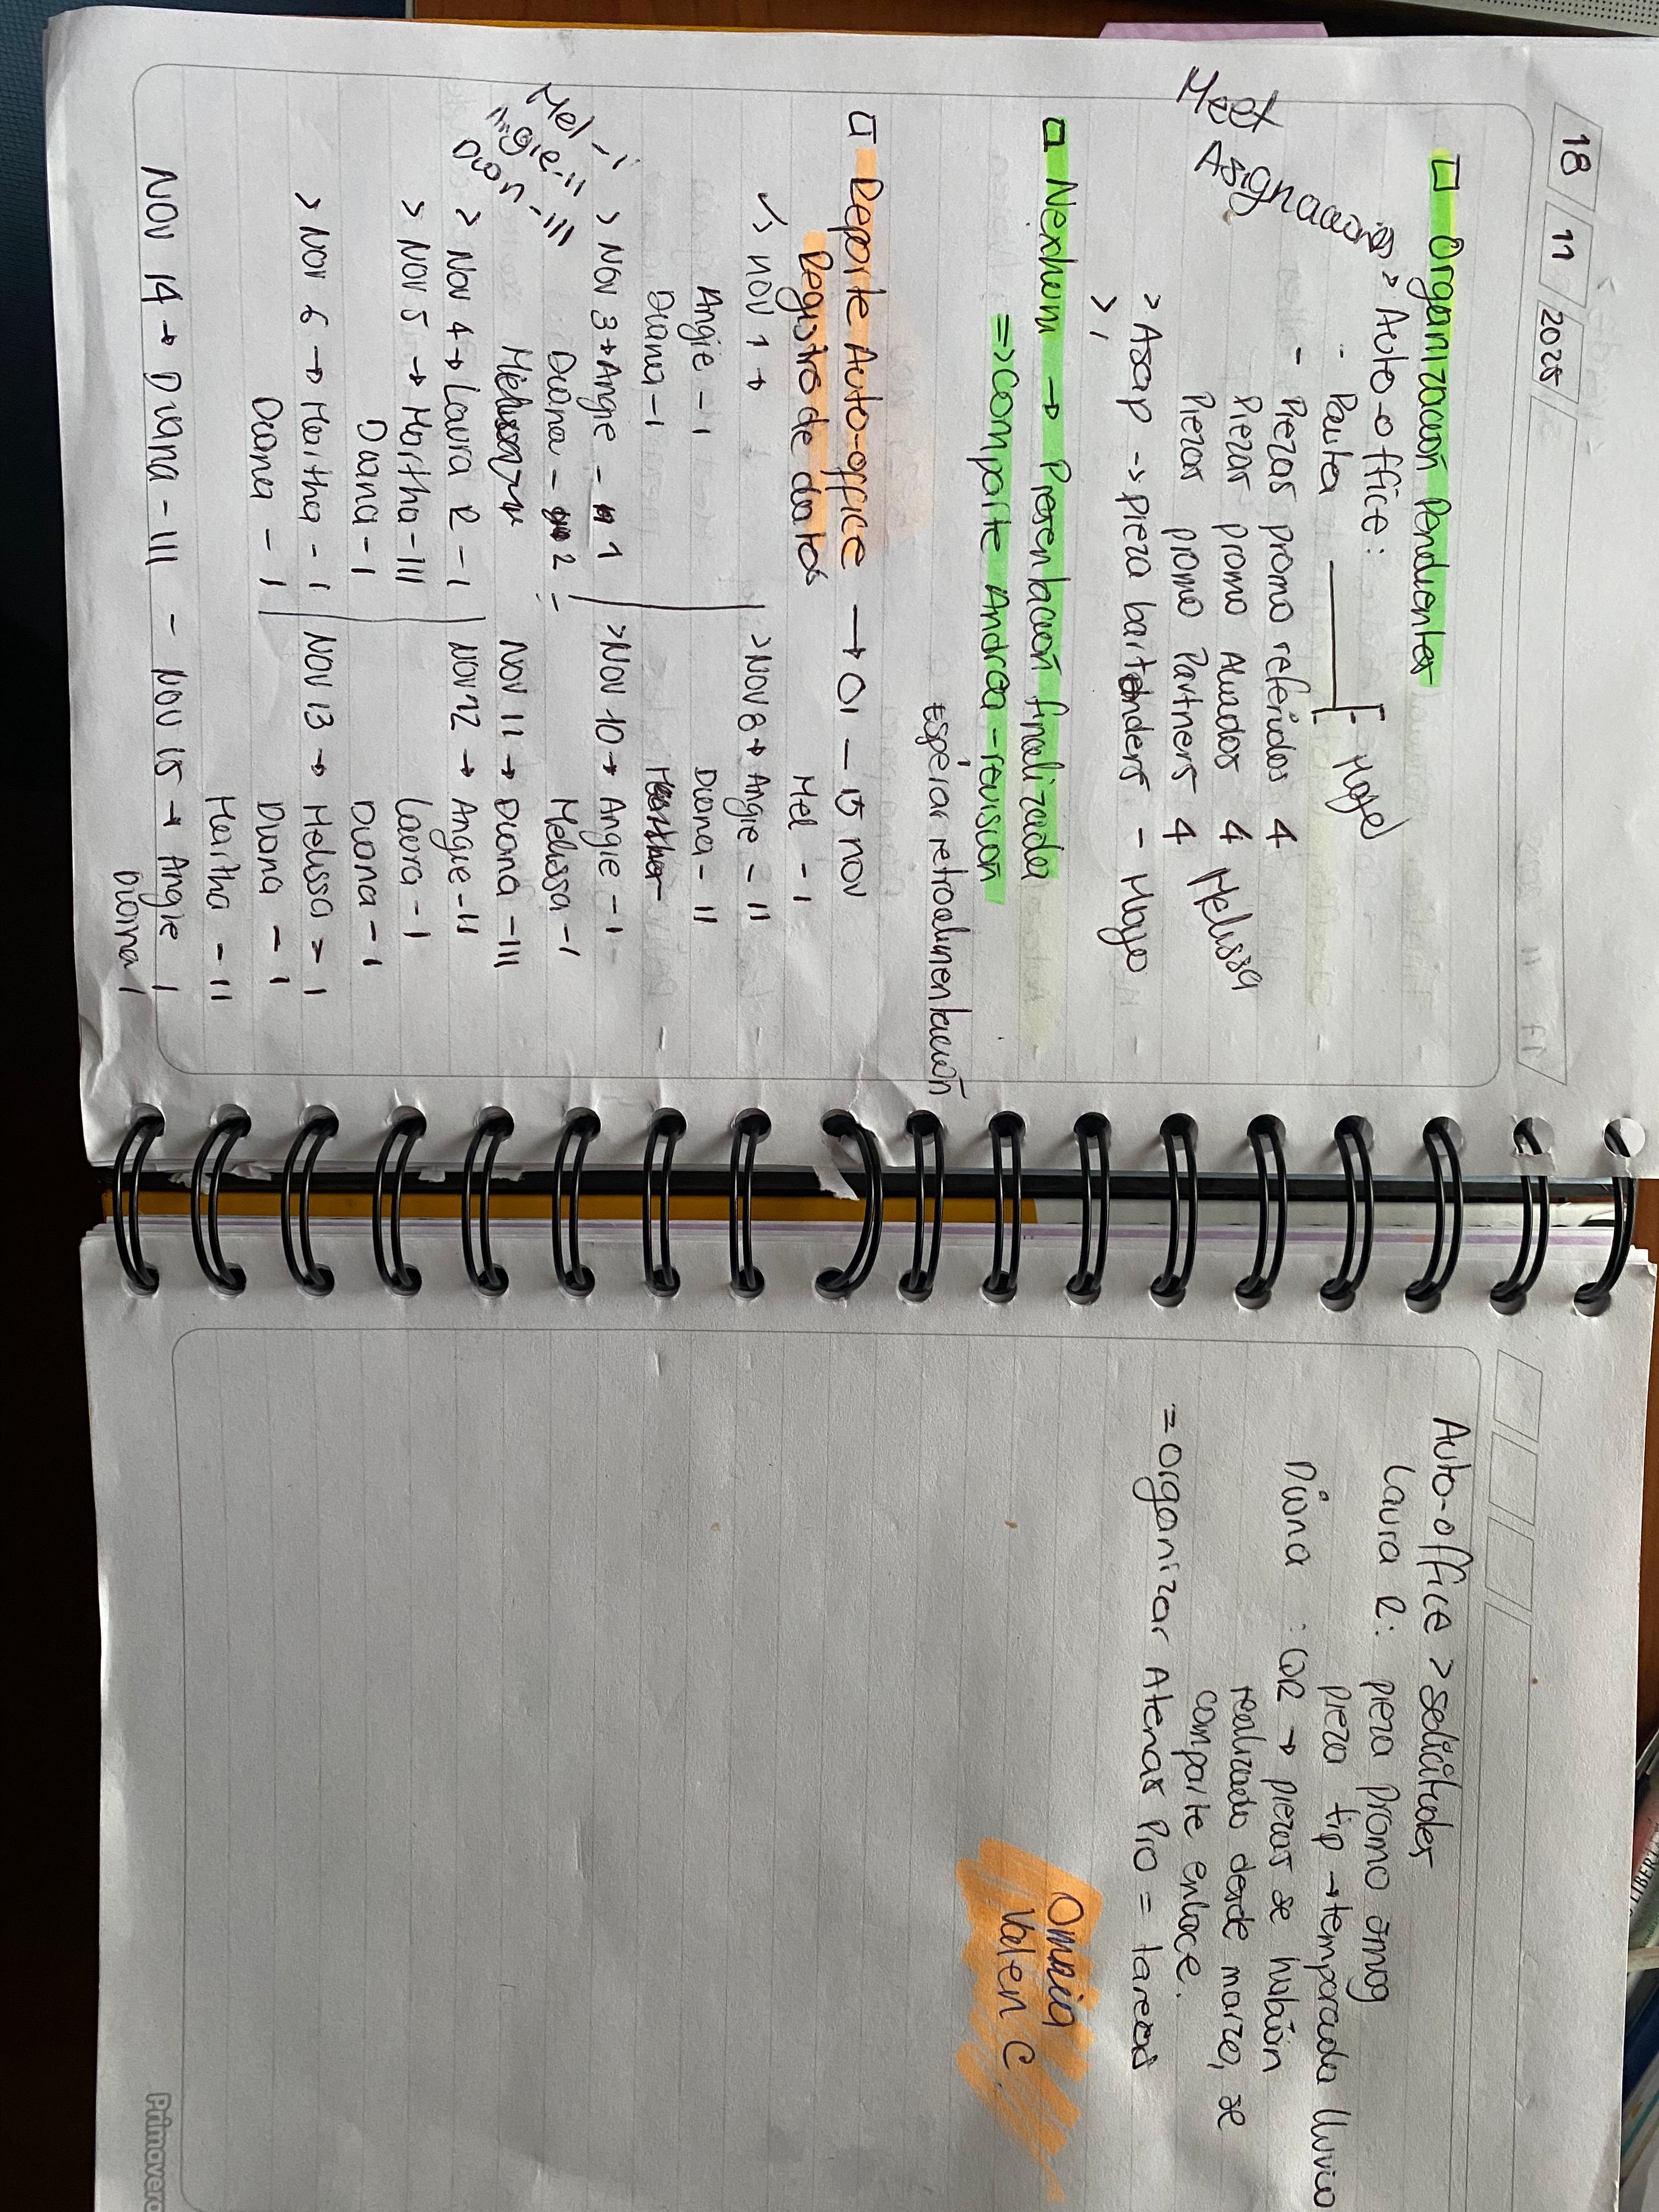 18 / 11 / 2025
□ Organización Pendientes
Meet
Asignaciones
> Auto-office:
- Pauta
- Piezas promo referidos 4
Mayo
Piezas promo Aliados 4 Melissa
Piezas promo Partners 4
> Asap → pieza bartenders - Mayo
>
□ Nexhum → Presentación finalizada
=> comparte Andrea - revisión
Esperar retroalimentación
□ Reporte Auto-office → 01 - 15 nov
Registro de datos
✓> nov 1 →
Angie - 11
Diana - 1
Mel - 1
Angie - 11
Dian - 111
> Nov 3 → Angie - 1
Diana - 2
> Nov 4 → Laura R - 1
> Nov 5 → Martha - 111
Diana - 1
> Nov 6 → Martha - 1
Diana - 1
Mel - 1
> Nov 8 → Angie - 11
Diana - 11
> Nov 10 → Angie - 1
Melissa - 1
Nov 11 → Diana - 111
Nov 12 → Angie - 11
Laura - 1
Diana - 1
Nov 13 → Melissa - 1
Diana - 1
Martha - 11
Nov 14 → Diana - 111 - Nov 15 → Angie 1
Diana 1
Auto-office > solicitudes
Laura R: pieza promo
pieza tip → temporada lluvia
Diana : COR → piezas se habían
realizado desde marzo, se
comparte enlace.
= organizar Atenas Pro = tareas
Omnia
Valen C
Primavera